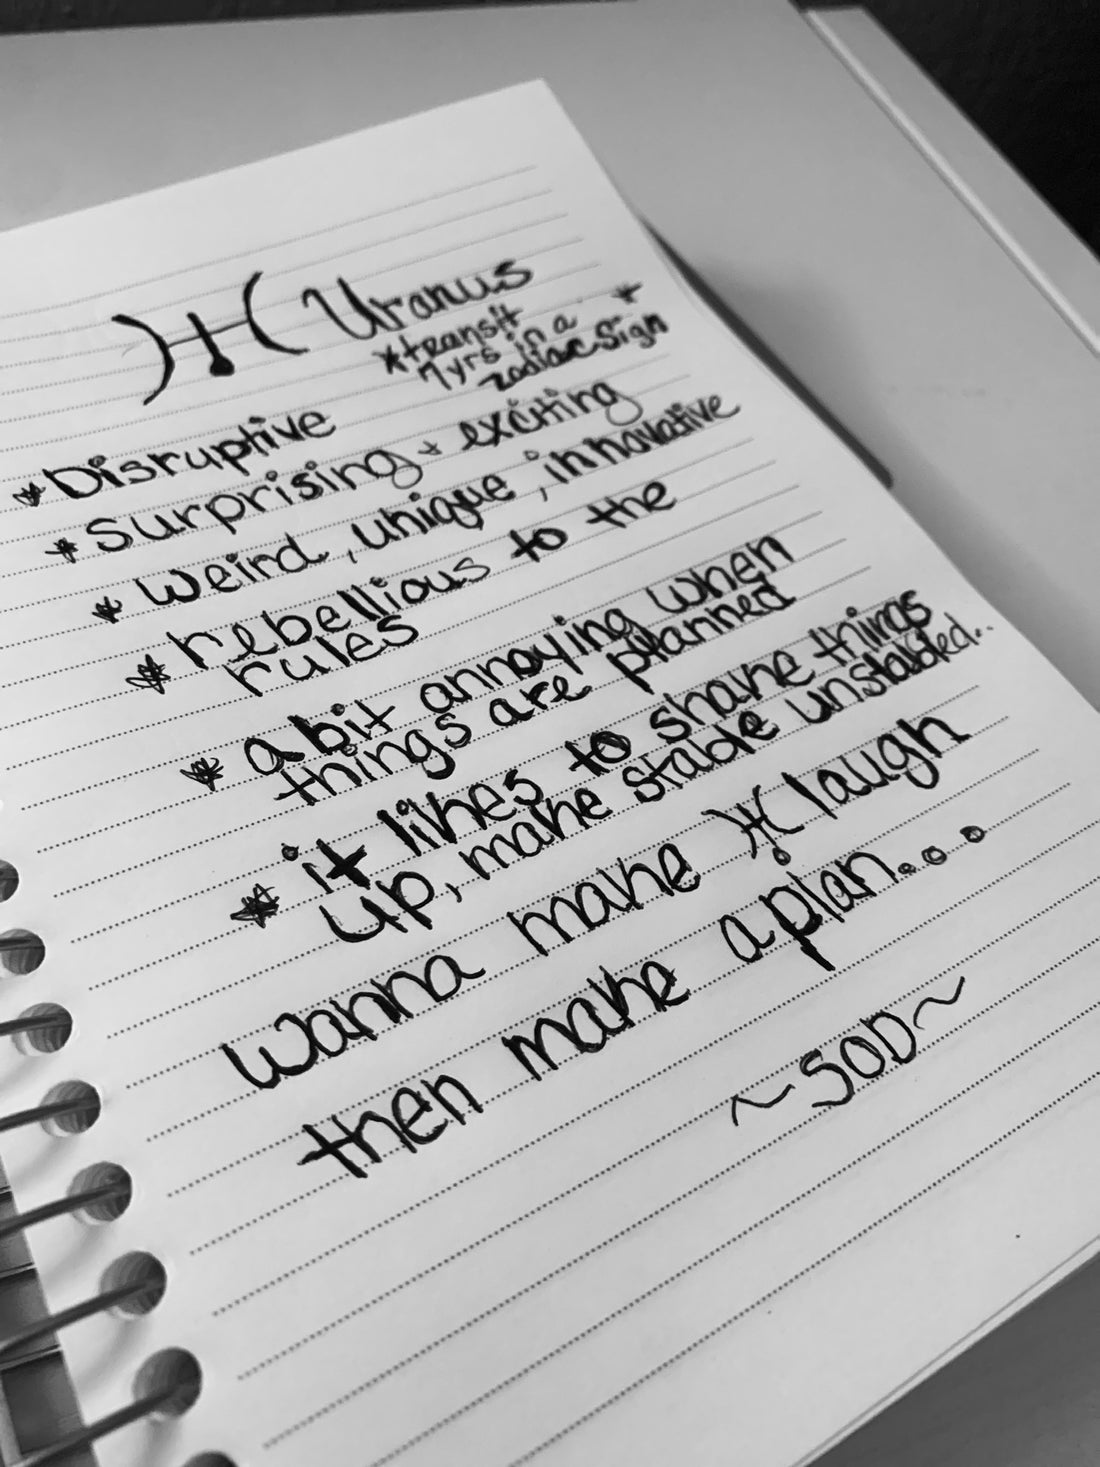 ♅ Uranus
*transit
7yrs in a
zodiac sign *
* Disruptive
* surprising + exciting
* weird, unique, innovative
* rebellious to the
rules
* a bit annoying when
things are planned
* it likes to shake things
up, make stable unstabled..
wanna make ♅ laugh
then make a plan...
~SOD~